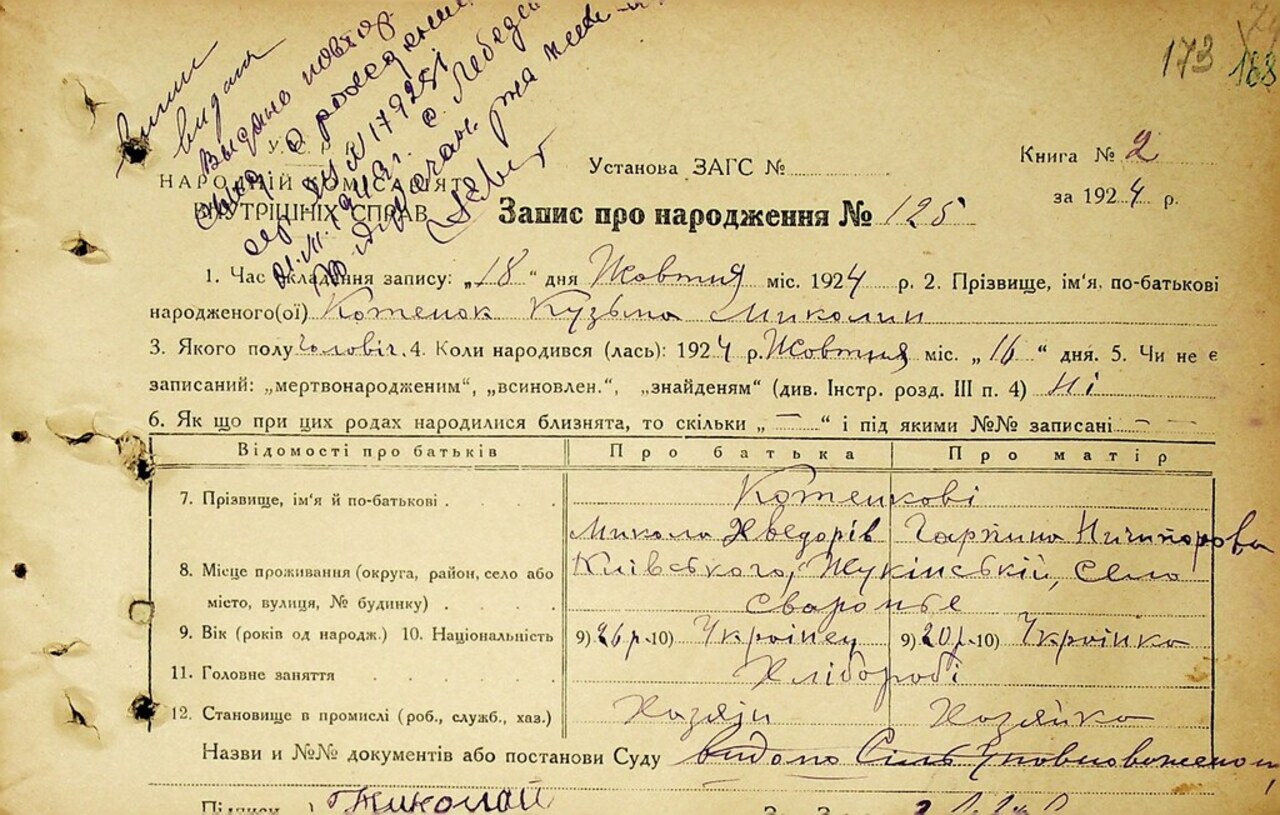 173
183
випис
видана
Выдано повтор.
о рождении
ІІІ № 179251
с. Лебед
У. С. Р. Р.
НАРОДНІЙ КОМІСАРІЯТ
ВНУТРІШНІХ СПРАВ
Установа ЗАГС №
Книга № 2
за 1924 р.
Запис про народження № 125
1. Час складання запису: „18“ дня Жовтня міс. 1924 р. 2. Прізвище, ім'я, по-батькові
народженого(ої) Котенок Кузьма Миколин
3. Якого полу Чоловіч. 4. Коли народився (лась): 1924 р. Жовтня міс. „16“ дня. 5. Чи не є
записаний: „мертвонародженим“, „всиновлен.“, „знайденям“ (див. Інстр. розд. III п. 4) Ні
6. Як що при цих родах народилися близнята, то скільки „—“ і під якими №№ записані — —
Відомості про батьків Про батька Про матір
7. Прізвище, ім'я й по-батькові Котенкові
Микола Хведорів Гарпина Ничипорова
8. Місце проживання (округа, район, село або Київського, Жукінській, Село
місто, вулиця, № будинку) Сваромье
9. Вік (років од народж.) 10. Національність 9) 26 р. 10) Українец 9) 20 р. 10) Українка
11. Головне заняття Хлібороби
12. Становище в промислі (роб., служб., хаз.) Хазяїн Хазяйка
Назви и №№ документів або постанови Суду видано Сіль Уповноваженом
Підписи Николай